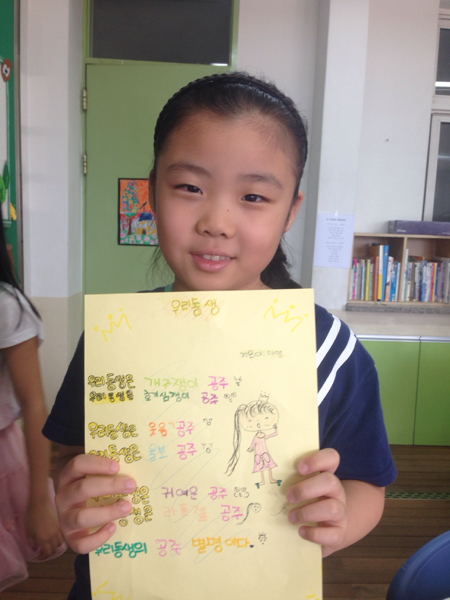 우리동생
우리동생은 개구쟁이 공주
우리동생은 호기심쟁이 공주
우리동생은 웃음 공주
우리동생은 울보 공주
우리동생은 귀여운 공주
우리동생은 라푼젤 공주
우리동생의 공주 별명이다.